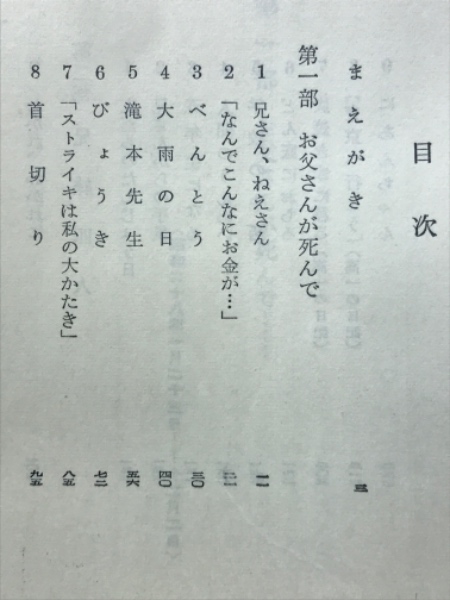 目次
まえがき 三
第一部 お父さんが死んで
1 兄さん、ねえさん 一一
2 「なんでこんなにお金が…」 二一
3 べんとう 三〇
4 大雨の日 四〇
5 滝本先生 五六
6 びょうき 七二
7 「ストライキは私の大かたき」 八五
8 首切り 九五